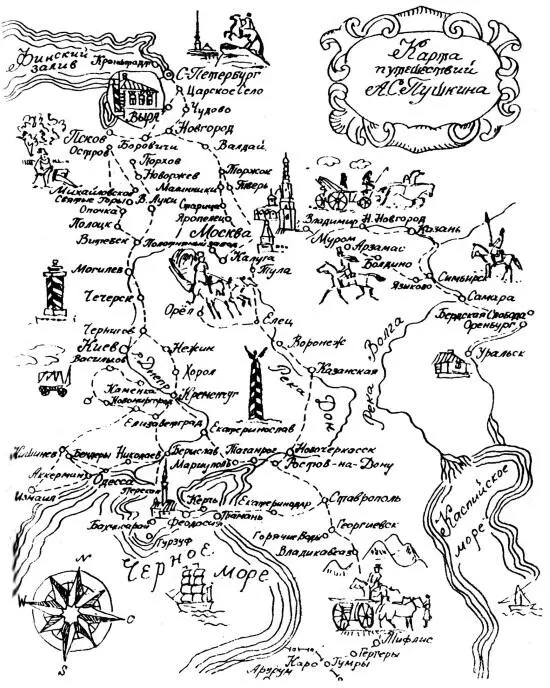 Карта
путешествий
А.С.Пушкина
Финский
залив
Кронштадт
С-Петербург
Царское село
Чудово
Выра
Новгород
Псков
Остров
Боровичи
Валдай
Порхов
Новоржев
Торжок
Тверь
Малинники
Михайловское
Святые Горы
В.Луки
Старица
Опочка
Яропелец
Полоцк
Москва
Владимир
Н.Новгород
Казань
Муром
Арзамас
Болдино
Витебск
Полотняный завод
Калуга
Тула
Языково
Симбирск
Могилев
Самара
Чечерск
Бердская Слобода
Оренбург
Орёл
Елец
Чернигов
Воронеж
Уральск
Киев
Васильков
р. Днепр
Нежин
Река
Дон
Казанская
Река Волга
Хорол
Каменка
Новомиргород
Кременчуг
Елизаветград
Екатеринослав
Кишинев
Бендеры
Николаев
Берислав
Таганрог
Новочеркасск
Мариуполь
Ростов-на-Дону
Аккерман
Одесса
Перекоп
Измаил
Керчь
Екатеринодар
Ставрополь
Бахчисарай
Феодосия
Тамань
Георгиевск
Гурзуф
Горячие Воды
Владикавказ
Каспийское
море
Черное
море
N
W
O
S
Тифлис
Гергеры
Гумры
Карс
Арзрум